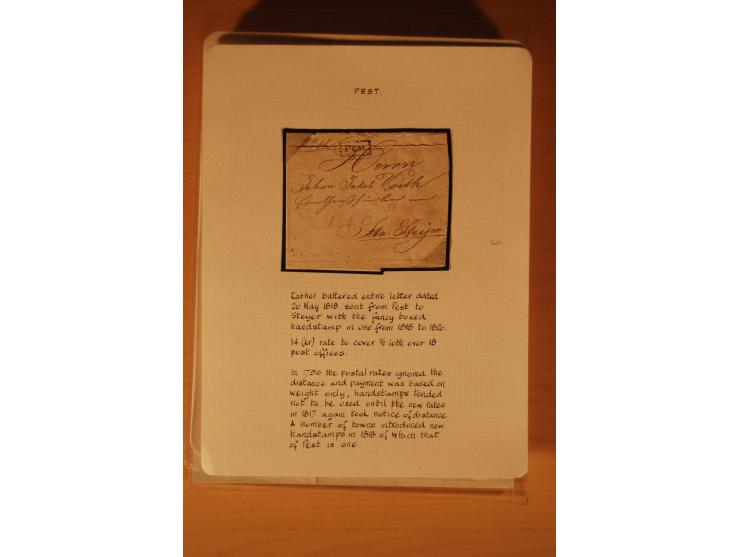 PEST.
PESTH
Herrn
Johan Jakob
in
Steijer
60
Rather battered entire letter dated
20 May 1818 sent from Pest to
Steyer with the fancy boxed
handstamp in use from 1818 to 1820.
14 (kr) rate to cover ½ loth over 18
post offices.
In 1790 the postal rates ignored the
distance and payment was based on
weight only, handstamps tended
not to be used until the new rates
in 1817 again took notice of distance
A number of towns introduced new
handstamps in 1818 of which that
of Pest is one.